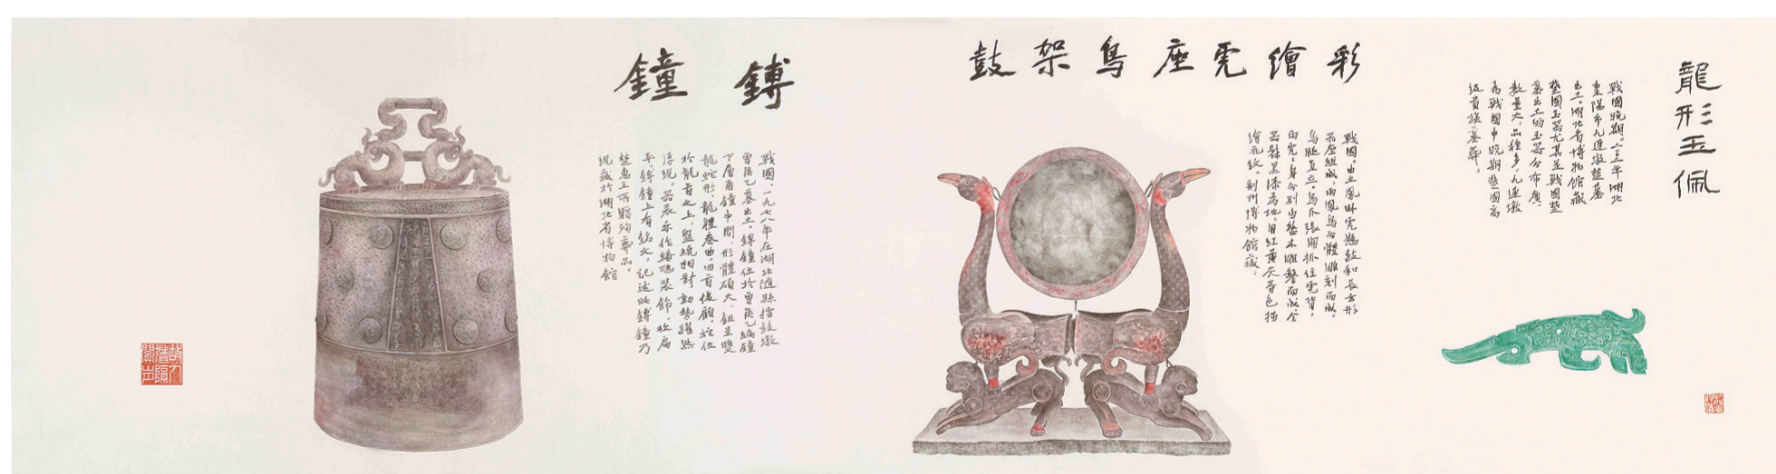 龍形玉佩
戰國晚期。二〇〇二年湖北
棗陽市九連墩楚墓
出土。湖北省博物館藏
楚國玉器尤其是戰國楚
墓出土的玉器分布廣、
數量大、品種多。九連墩
為戰國中晚期楚國高
級貴族墓葬。
彩繪虎座鳥架鼓
戰國。由立鳳卧虎懸鼓和長方形
器座組成。兩鳳鳥分體雕刻而成，
鳥腿直立，鳥爪張開抓住虎背，
兩虎身分別由整木雕鑿而成。全
器髹黑漆為地。用紅黃灰等色描
繪花紋。荊州博物館藏。
鎛鐘
戰國。一九七八年在湖北隨縣擂鼓墩
曾侯乙墓出土。鎛鐘位於曾侯乙編鐘
下層甬鐘中間，形體碩大，鈕呈雙
龍蛇形，龍體卷曲，回首後顧，蛇位
於龍首之上，盤繞相對，動勢躍然
浮現。器表亦作蟠虺裝飾，枚扁
平。鎛鐘上有銘文，記述此鎛鐘乃
楚惠王所贈殉葬品。
現藏於湖北省博物館